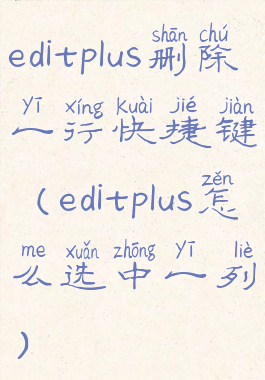 shān chú
editplus删除
yī xíng Kuài jié jiàn
一行快捷键
zěn
（editplus怎
me xuǎn zhōng yī liè
么选中一列
）